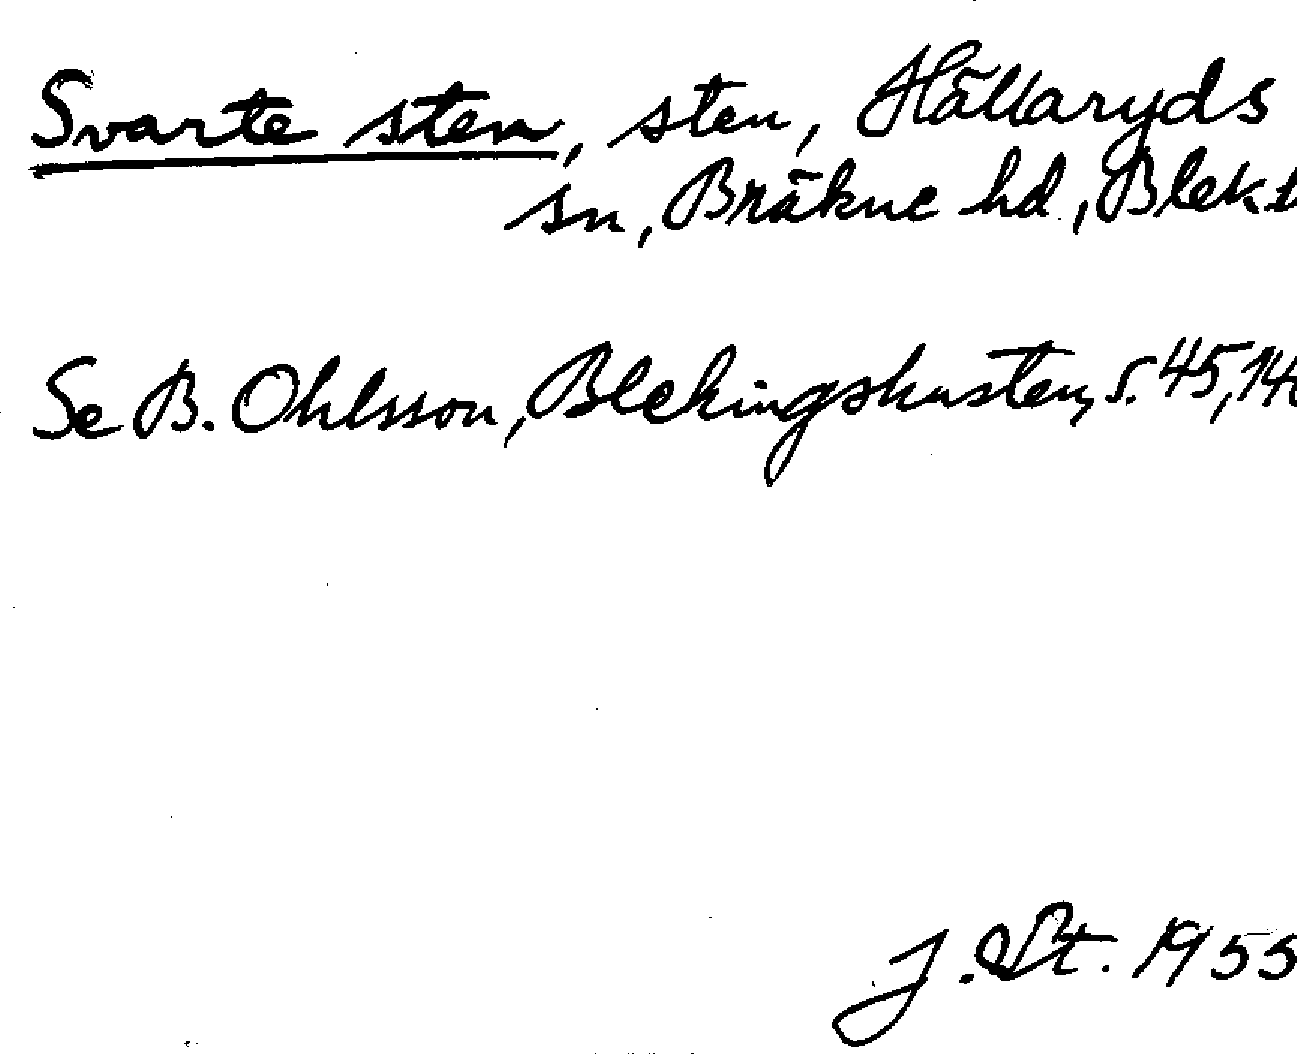 Svarte sten, sten, Hällaryds
sn, Bräkne hd, Blek.
Se B. Ohlsson, Blekingskusten, s. 45,
J. St. 1955